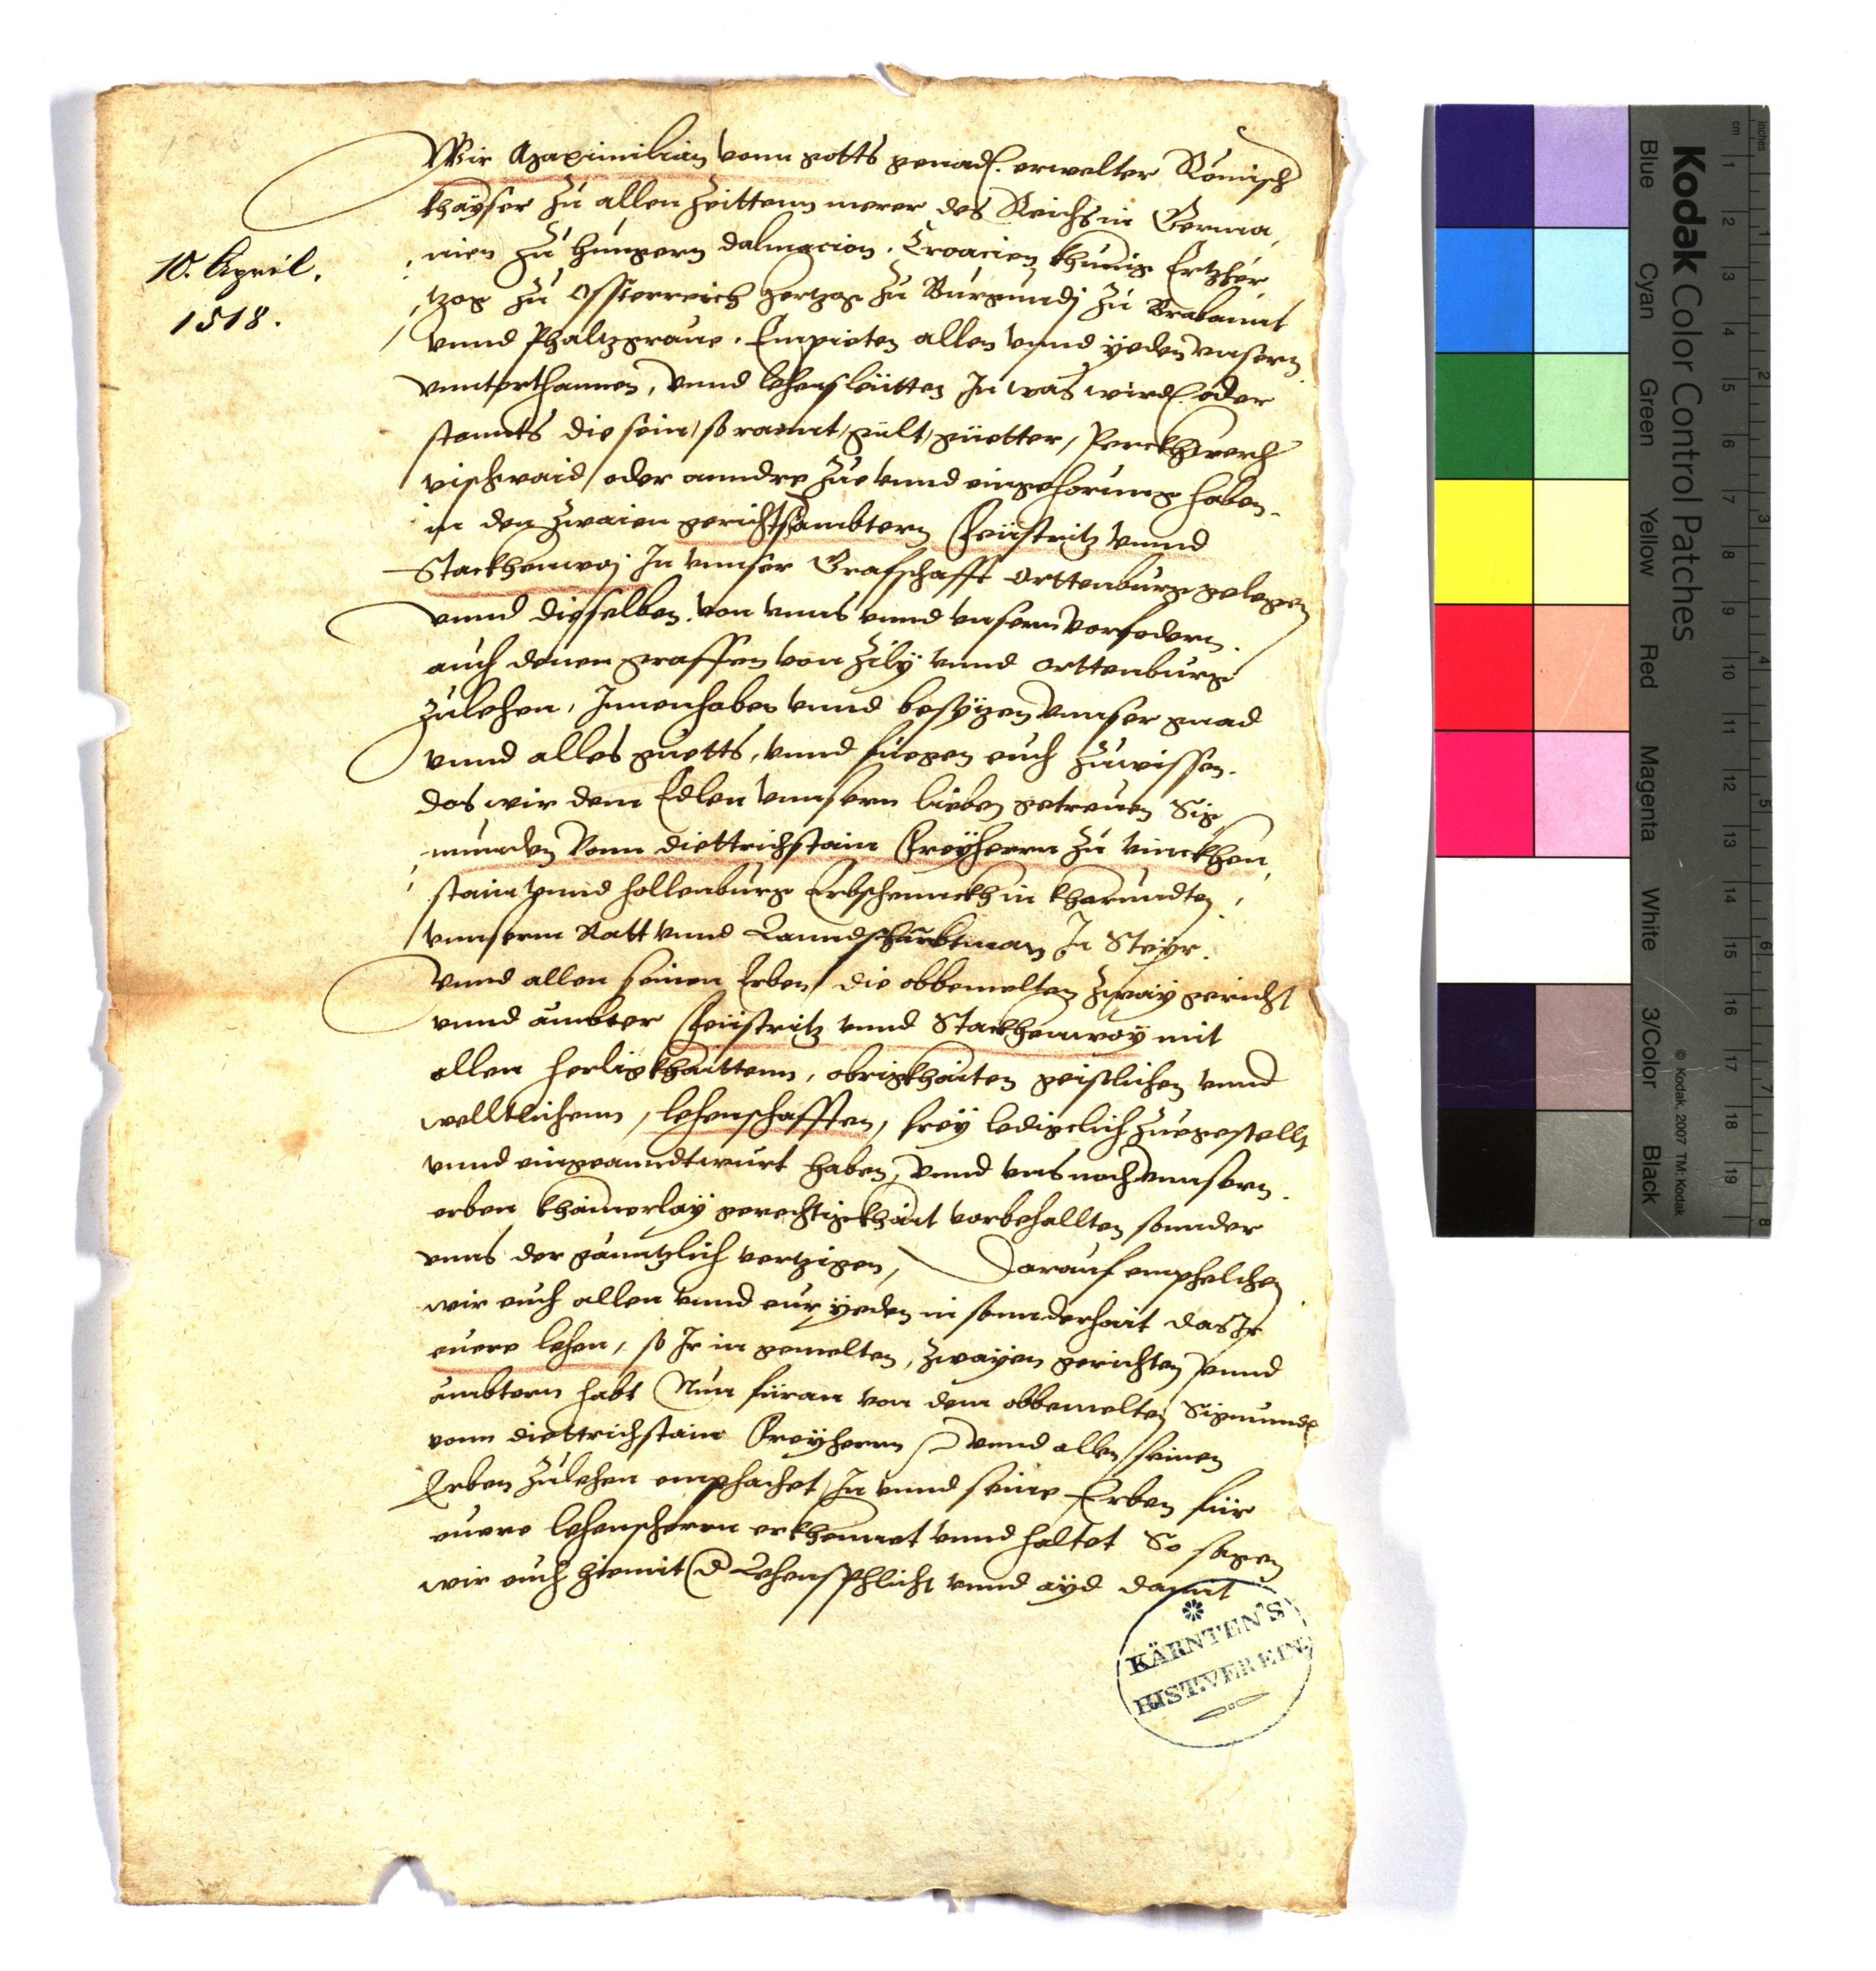 10. April.
1518.
Wir Maximilian vonn gotts genad. erwelter Römisch
khayser zu allen Zeittenn merer des Reichs in Germa,
nien zu hungern dalmacion. Croacien khunig Ertzher,
tzog zu Ossterreich hertzog zu Burgundj zu Brabannt
vnnd Phaltzgraue. Empieten allen vnnd yeden vnsern
vnnterthannen, vnnd lehensleütten In was wird. oder
stannts die sein, so rannt, gült, güetter, Perckhwerch
vischwaid, oder anndre zue vnnd eingehorung haben.
in den zwaien gerichtsambtern Feüstritz vnnd
Stackhenwoj In vnnser Grafschafft Orttenburg gelegen
vnnd dieselben. von vnns vnnd vnsern vorfodern.
auch denen graffen von Zily vnnd orttenburg
zulehen, Innenhaben vnnd besytzen vnnser gnad
vnnd alles guetts, vnnd fuegen euch zuwissen.
das wir dem Edlen vnnsern lieben getreuen Sig,
munden Vonn diettrichstain Freyherrn zu vinckhen,
stain vnnd hollenburg Erbschennckh in kharnndten,
vnnserm Ratt vnnd Lanndshaubtman In Steyr.
vnnd allen seinen Erben, die obbemelten zway gericht
vnnd ambter Feüstritz vnnd Stackhenwoy mit
allen herligkhaittenn, obrigkhaiten geistlichen vnnd
welltlichenn, lehenschafften, frey lediclich zuegestellt
vnnd eingeanndtwurt haben, vnnd vns noch vnnsern.
erben khainerlay gerechtigkhait vorbehallten sonnder
vnns der ganntzlich vertzigen, Darauf emphelchen
wir euch allen vnnd eur yeden in sonnderhait das Ir
euere lehen, so Ir in gemelten, zwayen gerichten vnnd
ambtern habt Nun füran von dem obbemelten Sigmunde
vonn diettrichstain Freyherrn vnnd allen seinen
Erben zulehen emphachet, In vnnd seine Erben für
euere lehenherrn erkhennet vnnd haltet So sagen
wir euch hiemit d Lehensphlicht vnnd ayd damit
KÄRNTEN'S
HIST.VEREIN
Kodak Color Control Patches
Blue Cyan Green Yellow Red Magenta White 3/Color Black
© Kodak, 2007 TM: Kodak
inches 1 2 3 4 5 6 7 8
cm 1 2 3 4 5 6 7 8 9 10 11 12 13 14 15 16 17 18 19